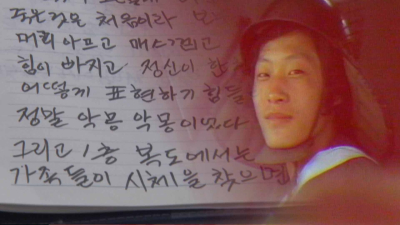 처음이라
머리 아프고 매스껍고
힘이 빠지고 정신이
어떻게 표현하기 힘들
정말 악몽 악몽이었다
그리고 1층 복도에서는
가족들이 시체을 찾으면